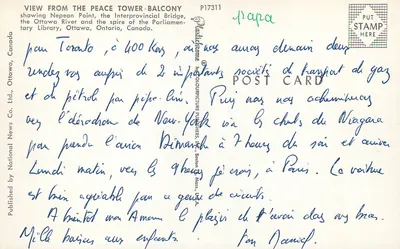 VIEW FROM THE PEACE TOWER-BALCONY
showing Nepean Point, the Interprovincial Bridge,
the Ottawa River and the spire of the Parliamen-
tary Library, Ottawa, Ontario, Canada.
P17311
papa
PUT
STAMP
HERE
POST CARD
Published by National News Co. Ltd., Ottawa, Canada
pour Toronto, à 400 Kms, où nous aurons demain deux
rendez vous auprès de 2 importantes sociétés de transport de gaz
et du pétrole par pipe-line. Puis nous nous acheminerons
vers l'aérodrome de New-York via les chutes du Niagara
pour prendre l'avion Dimanche à 7 heures du soir et arriver
Lundi matin, vers les 9 heures je crois, à Paris. La voiture
est bien agréable pour ce genre de circuits.
A bientôt mon Amour le plaisir de t'avoir dans mes bras.
Mille baisers aux enfants. ton